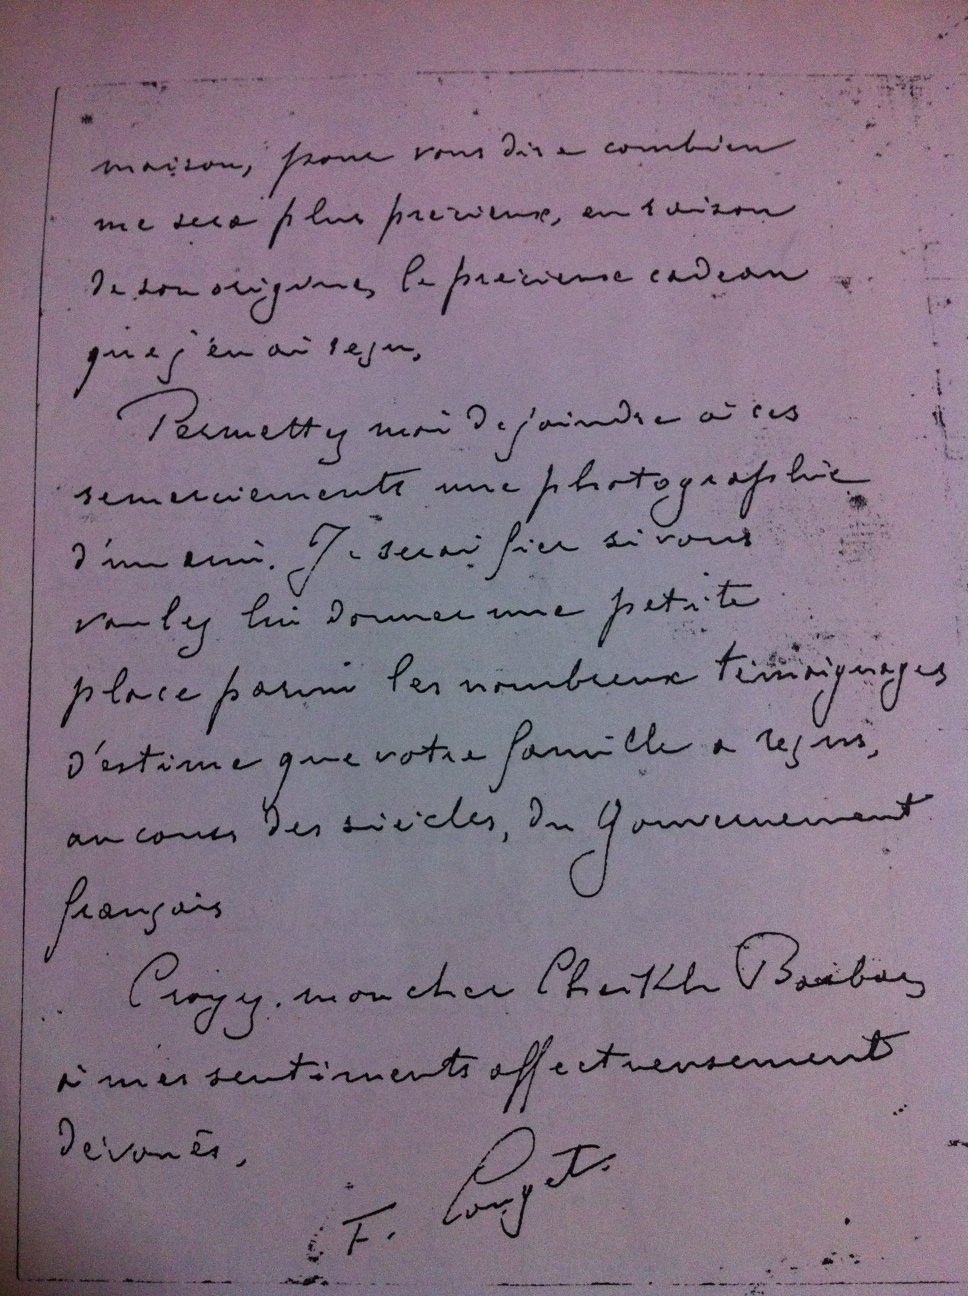 maison, pour vous dire combien
me sera plus précieux, en raison
de son origine, le précieux cadeau
que j'en ai reçu.
Permettez moi de joindre à ces
remerciements une photographie
d'un ami. Je serai fier si vous
voulez lui donner une petite
place parmi les nombreux témoignages
d'estime que votre famille a reçus,
au cours des siècles, du Gouvernement
français
Croyez, mon cher Cheikh
à mes sentiments affectueusement
dévoués,
F. Couget